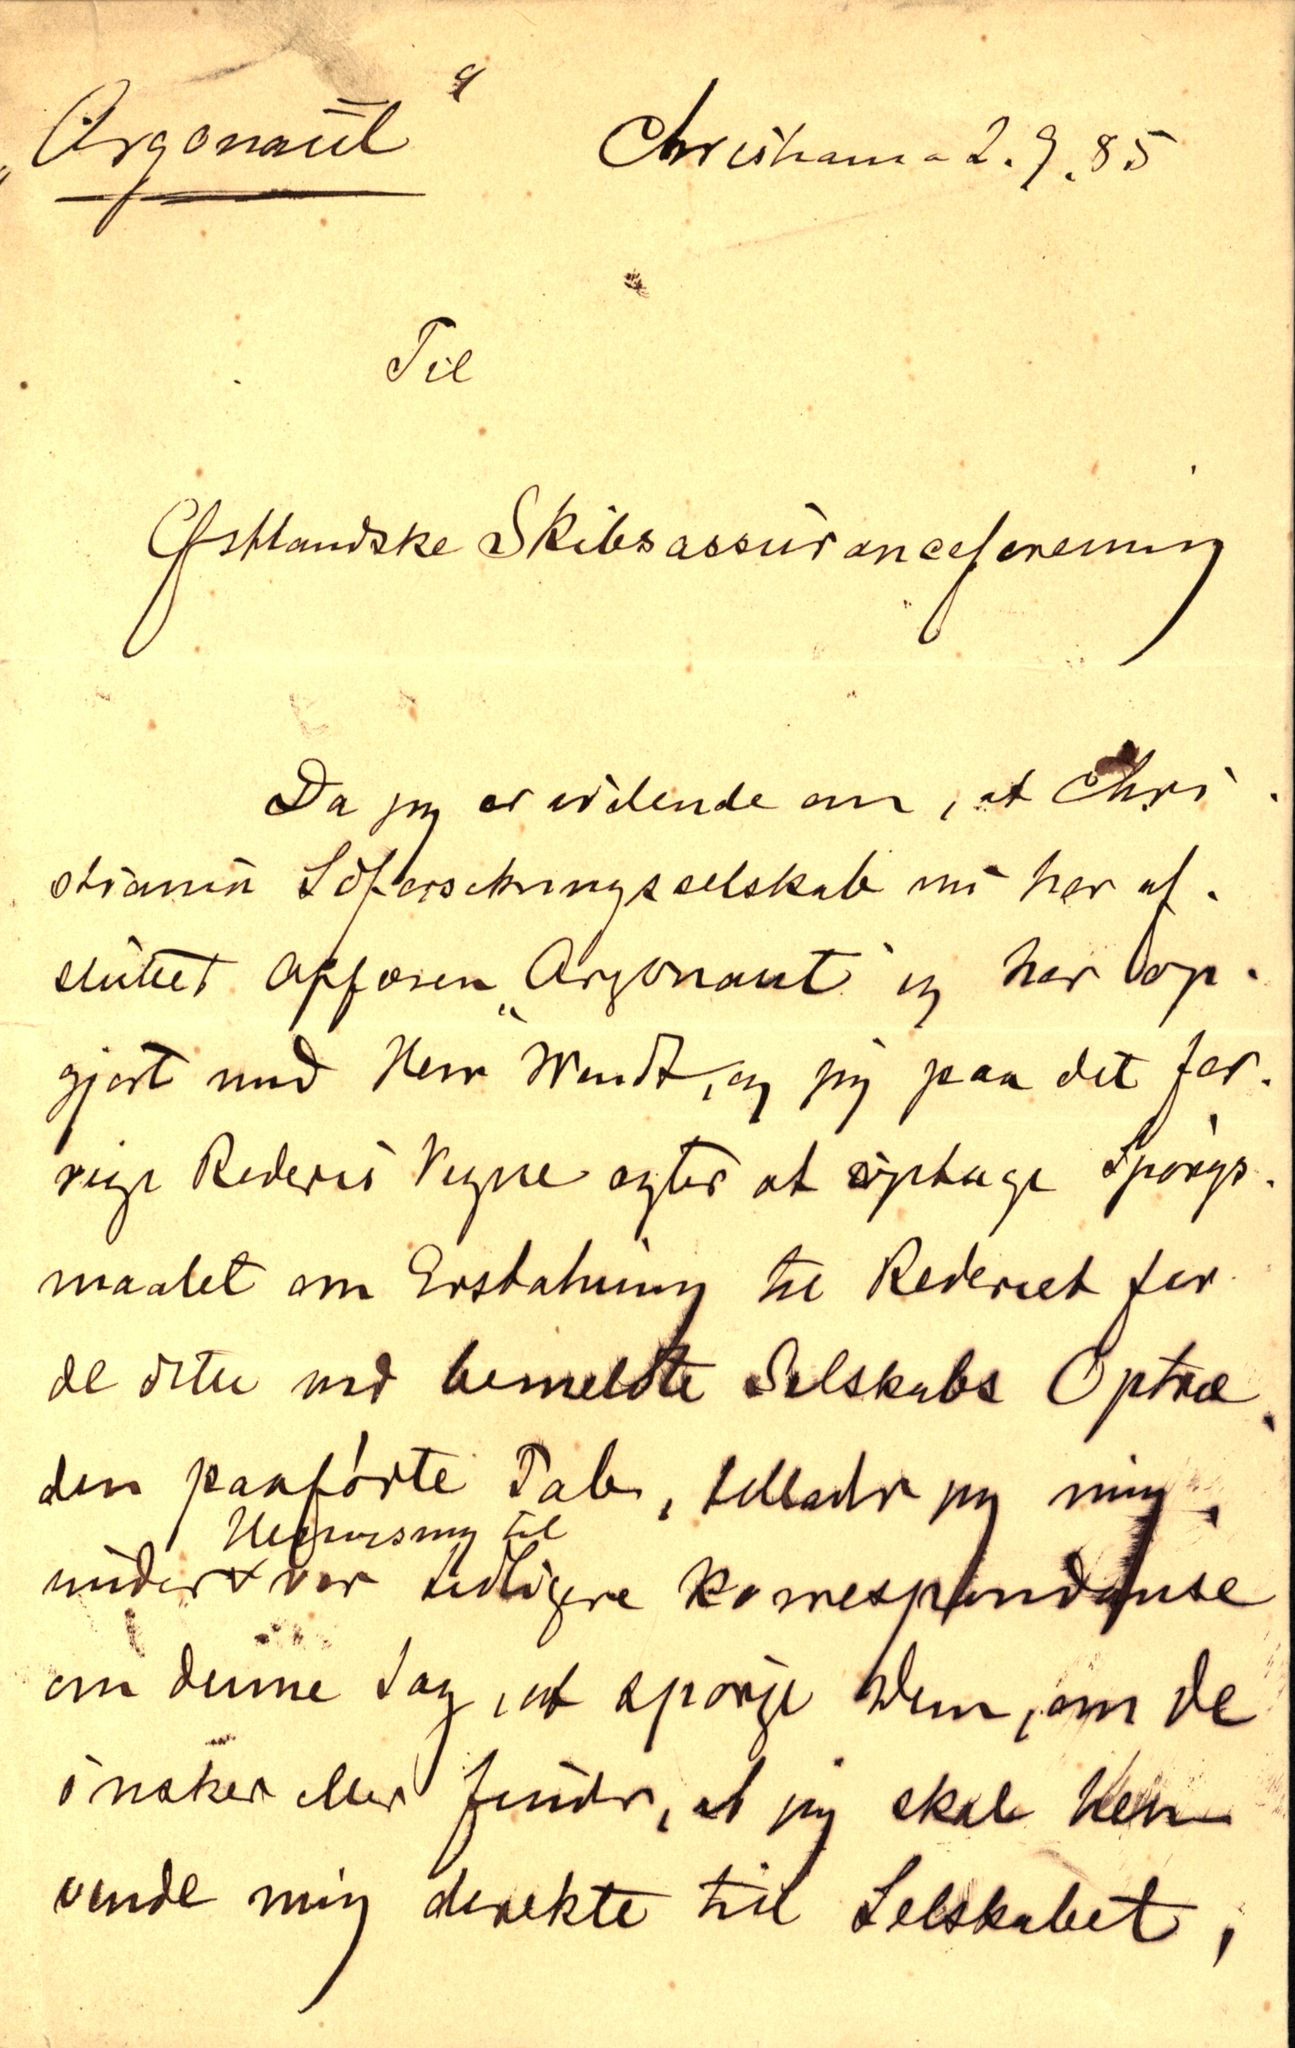 „Argonaut“ Christiania 2.9.85
Til
Østlandske Skibsassuranceforening
Da jeg er vidende om, at Chri-
stiania Söforsikringsselskab nu har af-
sluttet Affæren „Argonaut“ og har op-
gjort med Herr Wendt, og jeg paa det for-
rige Rederis Vegne agter at optage Spörgs-
maalet om Erstatning til Rederiet for
de dette ved bemeldte Selskabs Optræ-
den paaförte Tab, tillader jeg mig,
under Henvisning til vor tidligere Korrespondanse
om denne Sag, at spörge Dem, om De
önsker eller finder, at jeg skal hen-
vende mig direkte til Selskabet,